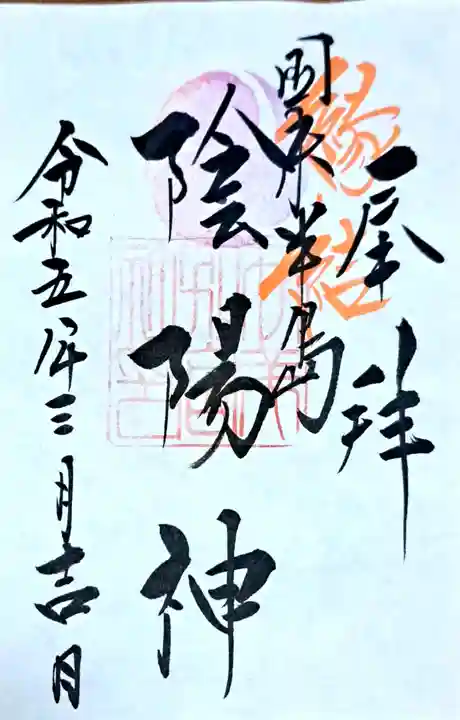 縁結
拝
国東半島
陰陽神
令和五年三月吉日